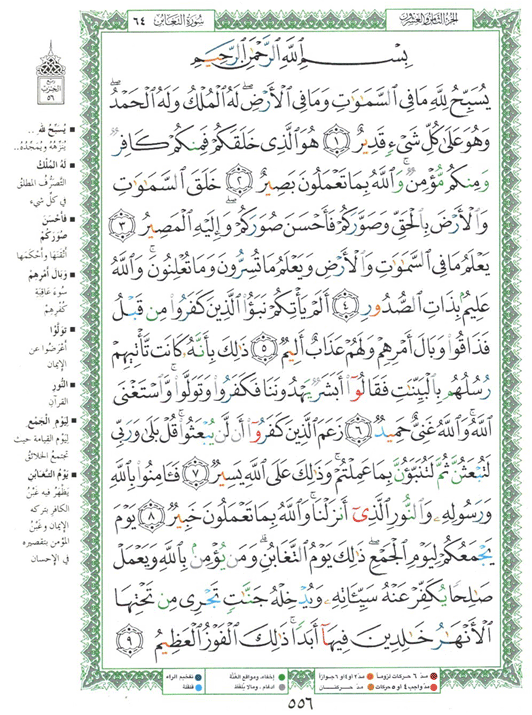 سُورَةُ التَّغَابُن ٦٤
الجزء الثامن والعشرون
بِسْمِ اللَّهِ الرَّحْمَٰنِ الرَّحِيمِ
يُسَبِّحُ لِلَّهِ مَا فِي السَّمَاوَاتِ وَمَا فِي الْأَرْضِ ۖ لَهُ الْمُلْكُ وَلَهُ الْحَمْدُ ۖ
وَهُوَ عَلَىٰ كُلِّ شَيْءٍ قَدِيرٌ ﴿١﴾ هُوَ الَّذِي خَلَقَكُمْ فَمِنكُمْ كَافِرٌ
وَمِنكُم مُّؤْمِنٌ ۚ وَاللَّهُ بِمَا تَعْمَلُونَ بَصِيرٌ ﴿٢﴾ خَلَقَ السَّمَاوَاتِ
وَالْأَرْضَ بِالْحَقِّ وَصَوَّرَكُمْ فَأَحْسَنَ صُوَرَكُمْ ۖ وَإِلَيْهِ الْمَصِيرُ ﴿٣﴾
يَعْلَمُ مَا فِي السَّمَاوَاتِ وَالْأَرْضِ وَيَعْلَمُ مَا تُسِرُّونَ وَمَا تُعْلِنُونَ ۚ وَاللَّهُ
عَلِيمٌ بِذَاتِ الصُّدُورِ ﴿٤﴾ أَلَمْ يَأْتِكُمْ نَبَؤُا۟ الَّذِينَ كَفَرُوا مِن قَبْلُ
فَذَاقُوا وَبَالَ أَمْرِهِمْ وَلَهُمْ عَذَابٌ أَلِيمٌ ﴿٥﴾ ذَٰلِكَ بِأَنَّهُ كَانَت تَّأْتِيهِمْ
رُسُلُهُم بِالْبَيِّنَاتِ فَقَالُوا أَبَشَرٌ يَهْدُونَنَا فَكَفَرُوا وَتَوَلَّوا ۚ وَّاسْتَغْنَى
اللَّهُ ۚ وَاللَّهُ غَنِيٌّ حَمِيدٌ ﴿٦﴾ زَعَمَ الَّذِينَ كَفَرُوا أَن لَّن يُبْعَثُوا ۚ قُلْ بَلَىٰ وَرَبِّي
لَتُبْعَثُنَّ ثُمَّ لَتُنَبَّؤُنَّ بِمَا عَمِلْتُمْ ۚ وَذَٰلِكَ عَلَى اللَّهِ يَسِيرٌ ﴿٧﴾ فَـَٔامِنُوا بِاللَّهِ
وَرَسُولِهِ وَالنُّورِ الَّذِي أَنزَلْنَا ۚ وَاللَّهُ بِمَا تَعْمَلُونَ خَبِيرٌ ﴿٨﴾ يَوْمَ
يَجْمَعُكُمْ لِيَوْمِ الْجَمْعِ ۖ ذَٰلِكَ يَوْمُ التَّغَابُنِ ۗ وَمَن يُؤْمِن بِاللَّهِ وَيَعْمَلْ
صَالِحًا يُكَفِّرْ عَنْهُ سَيِّئَاتِهِ وَيُدْخِلْهُ جَنَّاتٍ تَجْرِي مِن تَحْتِهَا
الْأَنْهَارُ خَالِدِينَ فِيهَا أَبَدًا ۚ ذَٰلِكَ الْفَوْزُ الْعَظِيمُ ﴿٩﴾
ربع
الحزب
٥٦
يُسَبِّحُ لله ..
يُنَزِّهُهُ ويُمَجِّدُهُ..
لَهُ المُلْكُ
التَّصرُّف المطلق
في كلّ شيء
فَأَحْسَنَ
صُوَرَكُمْ
أَتْقَنَهَا وأَحْكَمَها
وَبَالَ أَمْرِهِمْ
سُوءَ عاقِبَة
كُفْرِهِمْ
تَوَلَّوْا
أَعْرَضُوا عن
الإيمان
النُّور
القرآن
لِيَوْمِ الْجَمْعِ
لِيَوْم القيامة حيث
تجتمعُ الخلائق
يَوْمُ التَّغَابُن
يَظْهَرُ فيه غَبْنُ
الكافر بتركه
الإيمان وغَبْنُ
المؤمن بتقصيره
في الإحسان
مدّ ٦ حركات لزوماً
مدّ ٢ أو ٤ أو ٦ جوازاً
إخفاء، ومواقع الغُنَّة
تفخيم الراء
مدّ واجب ٤ أو ٥ حركات
مدّ حركتـان
ادغام، ومالا يُلفَظ
قلقلة
٥٥٦